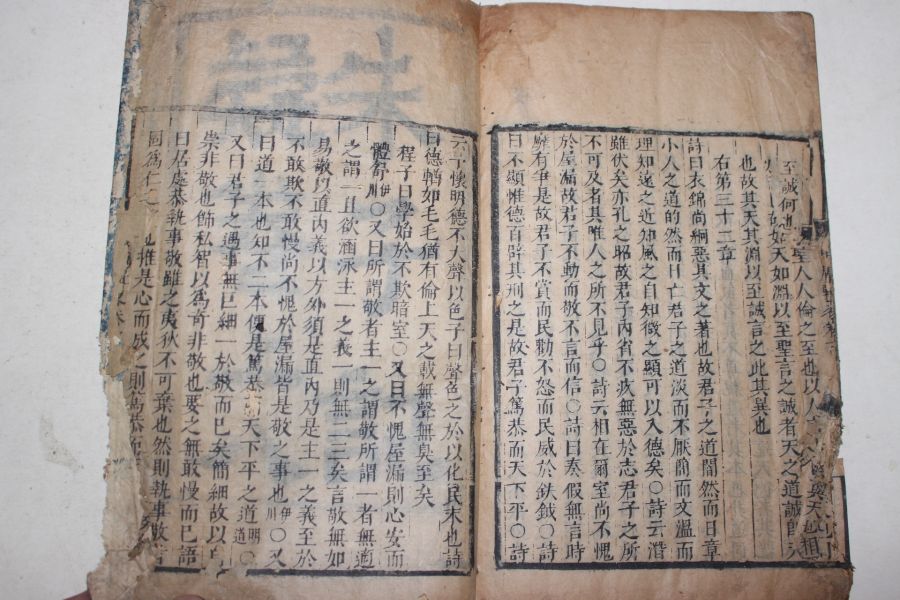 至誠何也 聖人人倫之至也以人
如天如淵以至聖言之誠者天之道誠
也故其天其淵以至誠言之此其異也
右第三十二章
詩曰衣錦尚絅惡其文之著也故君子之道闇然而日章
小人之道的然而日亡君子之道淡而不厭簡而文溫而
理知遠之近知風之自知微之顯可以入德矣○詩云潛
雖伏矣亦孔之昭故君子內省不疚無惡於志君子之所
不可及者其唯人之所不見乎○詩云相在爾室尚不愧
於屋漏故君子不動而敬不言而信○詩曰奏假無言時
靡有爭是故君子不賞而民勸不怒而民威於鈇鉞○詩
曰不顯惟德百辟其刑之是故君子篤恭而天下平○詩
云予懷明德不大聲以色子曰聲色之於以化民末也詩
曰德輶如毛毛猶有倫上天之載無聲無臭至矣
程子曰學始於不欺暗室○又曰不愧屋漏則心安而
體舒伊川○又曰所謂敬者主一之謂敬所謂一者無適
之謂一且欲涵泳主一之義一則無二三矣言敬無如
易敬以直內義以方外須是直內乃是主一之義至於
不敢欺不敢慢尚不愧於屋漏皆是敬之事也伊川○又
曰道一本也知不二本便是篤恭而天下平之道明道○
又曰君子之遇事無巨細一於敬而已矣簡細故以自
崇非敬也飾私智以為奇非敬也要之無敢慢而已語
曰居處恭執事敬雖之夷狄不可棄也然則執事敬者
固為仁之 也推是心而成之則篤恭而